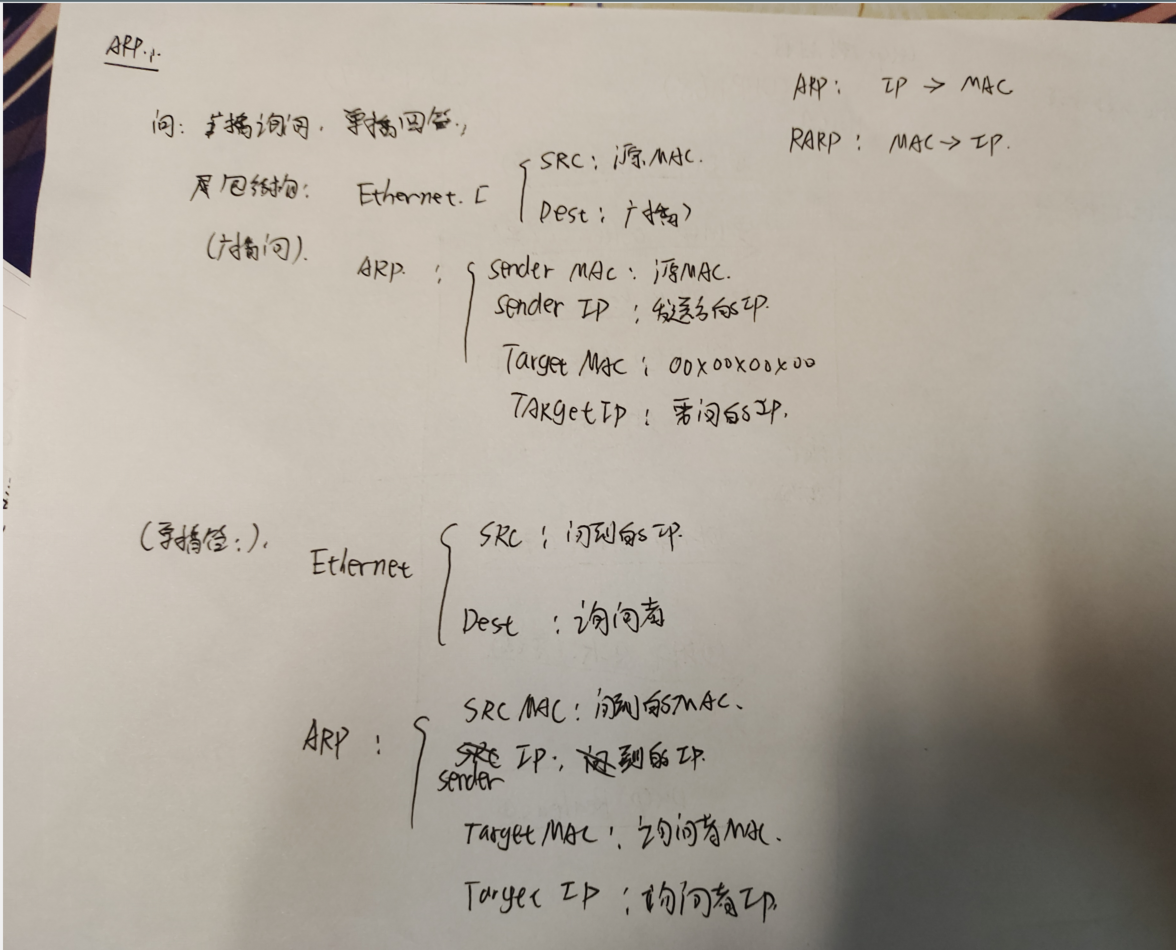 ARP.
ARP: IP → MAC
RARP: MAC → IP.
问: 广播询问, 单播回答.
包结构: Ethernet. [ SRC: 源MAC.
Dest: 广播
(广播问).
ARP: sender MAC: 源MAC.
sender IP: 发送方的IP.
Target MAC: 00x00x00x00
TARgetIP: 要问的IP.
(单播答:).
Ethernet SRC: 问到的IP.
Dest: 询问者
ARP: SRC MAC: 问到的MAC、
sender IP: 问到的IP.
Target MAC: 询问者MAC.
Target IP: 询问者IP.